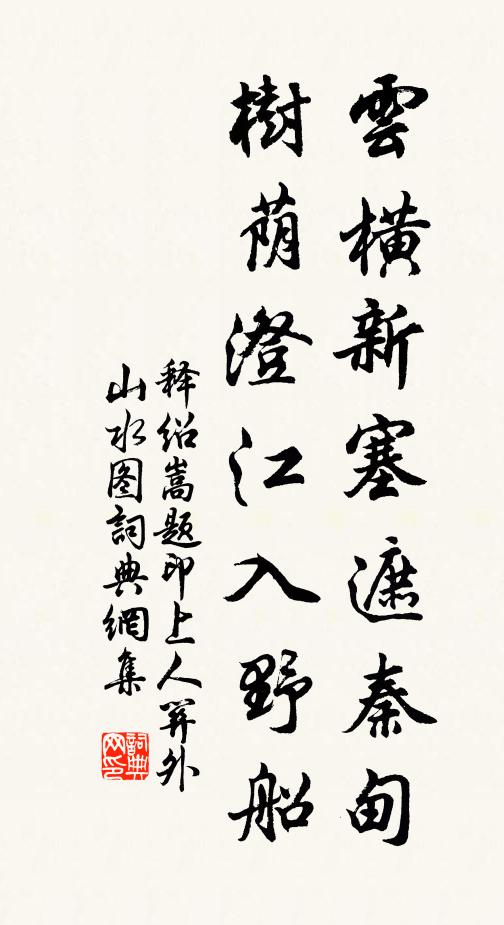 雲橫新塞遮秦甸
樹荫澄江入野船
释绍嵩题印上人屏外
山水图詞典網集
詞典网印